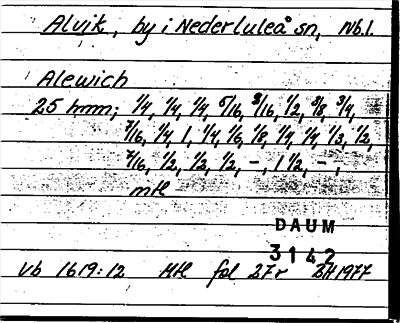 Alvik, by i Nederluleå sn, Nb.l.
Alewich
25 hmn; 1/4, 1/4, 1/4, 5/16, 3/16, 1/2, 3/8, 3/4,
7/16, 1/4, 1, 1/4, 1/6, 1/8, 1/4, 1/4, 1/3, 1/2,
7/16, 1/2, 1/2, 1/2, -, 1 1/2, -,
mtl
DAUM
3142
Vb 1619:12 Mtl fol 27r BH1977